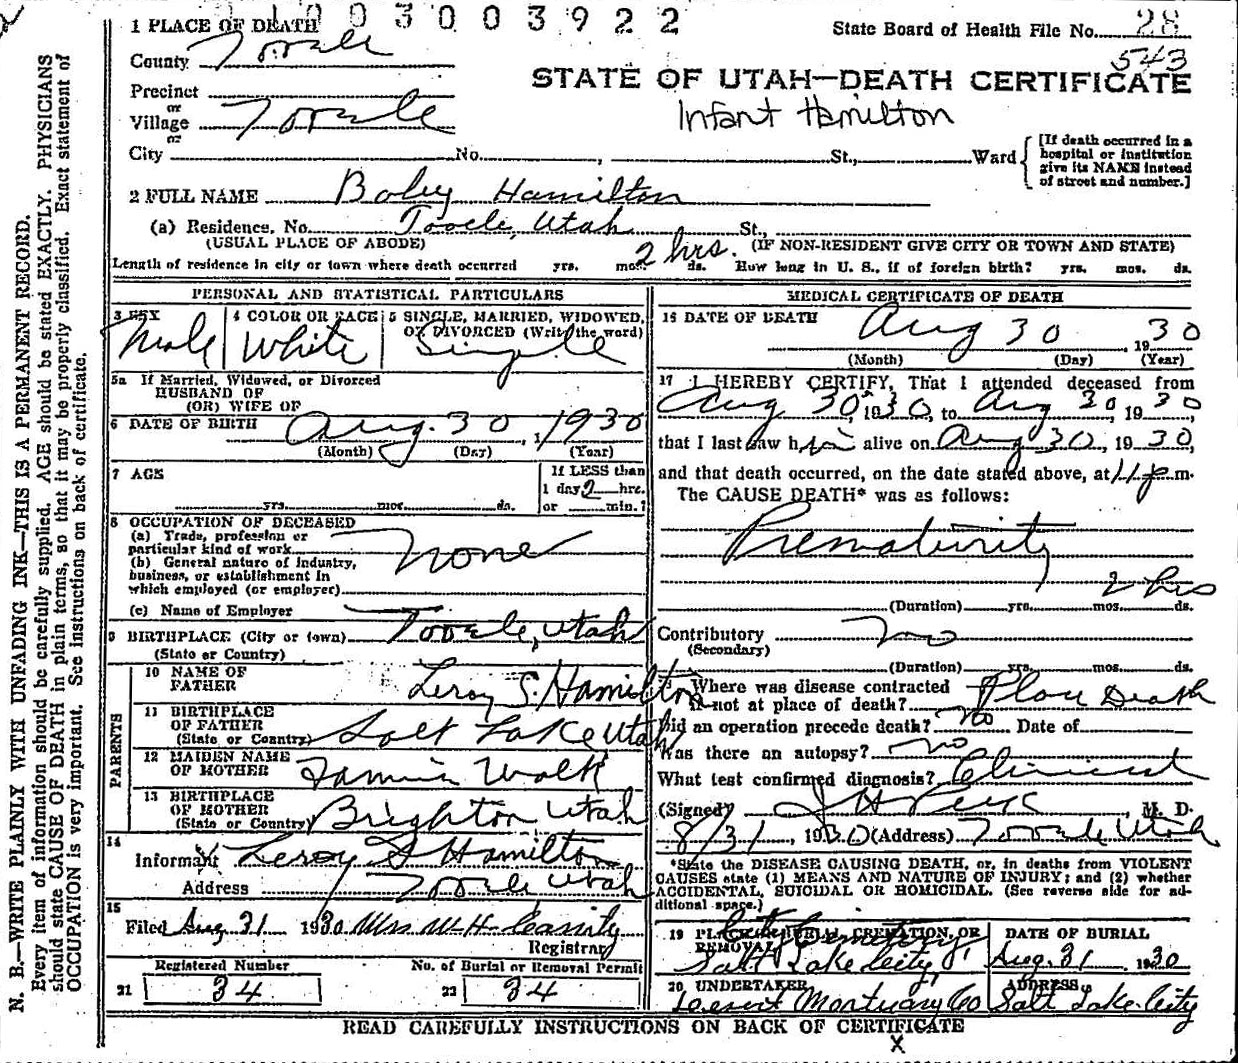 1003003922
State Board of Health File No. 28
543
1 PLACE OF DEATH
County Tooele
STATE OF UTAH—DEATH CERTIFICATE
Infant Hamilton
Precinct
or
Village Tooele
or
City No. , St., Ward
[If death occurred in a hospital or institution give its NAME instead of street and number.]
2 FULL NAME Baby Hamilton
(a) Residence. No. Tooele, Utah St.,
(USUAL PLACE OF ABODE) (IF NON-RESIDENT GIVE CITY OR TOWN AND STATE)
Length of residence in city or town where death occurred yrs. mos. 2 hrs. ds. How long in U. S., if of foreign birth? yrs. mos. ds.
PERSONAL AND STATISTICAL PARTICULARS
3 SEX 4 COLOR OR RACE 5 SINGLE, MARRIED, WIDOWED,
OR DIVORCED (Write the word)
Male White Single
5a If Married, Widowed, or Divorced
HUSBAND OF
(OR) WIFE OF
6 DATE OF BIRTH Aug. 30, 1930
(Month) (Day) (Year)
7 AGE If LESS than
1 day 2 hrs.
yrs. mos. ds. or min.?
8 OCCUPATION OF DECEASED
(a) Trade, profession or
particular kind of work None
(b) General nature of industry,
business, or establishment in
which employed (or employer)
(c) Name of Employer
9 BIRTHPLACE (City or town) Tooele, Utah
(State or Country)
PARENTS
10 NAME OF
FATHER Leroy S. Hamilton
11 BIRTHPLACE
OF FATHER
(State or Country) Salt Lake Utah
12 MAIDEN NAME
OF MOTHER Walk
13 BIRTHPLACE
OF MOTHER
(State or Country) Brighton Utah
14
Informant Leroy S Hamilton
Address Tooele Utah
15
Filed Aug 31 1930 Mrs W H Cassity
Registrar
Registered Number No. of Burial or Removal Permit
21 34 22 34
MEDICAL CERTIFICATE OF DEATH
16 DATE OF DEATH Aug 30, 1930
(Month) (Day) (Year)
17 I HEREBY CERTIFY, That I attended deceased from
Aug 30, 1930, to Aug 30, 1930,
that I last saw him alive on Aug 30, 1930,
and that death occurred, on the date stated above, at 11 p m.
The CAUSE DEATH* was as follows:
Prematurity
2 hrs
(Duration) yrs. mos. ds.
Contributory no
(Secondary)
(Duration) yrs. mos. ds.
Where was disease contracted
if not at place of death? Place Death
Did an operation precede death? no Date of
Was there an autopsy? no
What test confirmed diagnosis? Clinical
(Signed) J H Peck M. D.
8/31, 1930 (Address) Tooele Utah
*State the DISEASE CAUSING DEATH, or, in deaths from VIOLENT
CAUSES state (1) MEANS AND NATURE OF INJURY; and (2) whether
ACCIDENTAL, SUICIDAL OR HOMICIDAL. (See reverse side for ad-
ditional space.)
19 PLACE OF BURIAL, CREMATION, OR
REMOVAL City Cemetery
Salt Lake City
DATE OF BURIAL
Aug. 31 1930
20 UNDERTAKER
Deseret Mortuary Co
ADDRESS
Salt Lake City
READ CAREFULLY INSTRUCTIONS ON BACK OF CERTIFICATE
X
N. B.—WRITE PLAINLY WITH UNFADING INK—THIS IS A PERMANENT RECORD.
Every item of information should be carefully supplied. AGE should be stated EXACTLY. PHYSICIANS
should state CAUSE OF DEATH in plain terms, so that it may be properly classified. Exact statement of
OCCUPATION is very important. See instructions on back of certificate.